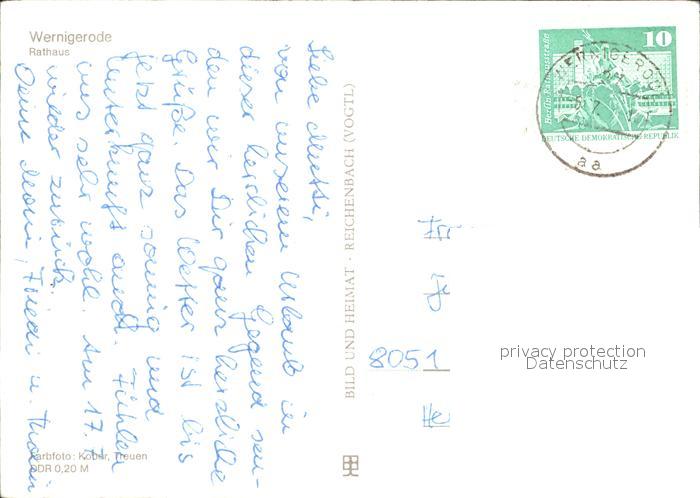 Wernigerode
Rathaus
Liebe Mutti,
von unserem Urlaub in
dieser herrlichen Gegend sen-
den wir Dir ganz herzliche
Grüße. Das Wetter ist bis
jetzt ganz sonnig und
Unterkunft auch. Fühlen
uns sehr wohl. Am 17.7.
wieder zurück.
Deine Moni, Friedi u. Thomi
Farbfoto: Kober, Treuen
DDR 0,20 M
BILD UND HEIMAT · REICHENBACH (VOGTL)
10
Berlin, Rathausstraße
DEUTSCHE DEMOKRATISCHE REPUBLIK
WERNIGERODE
aa
Frr
8051
He
privacy protection
Datenschutz